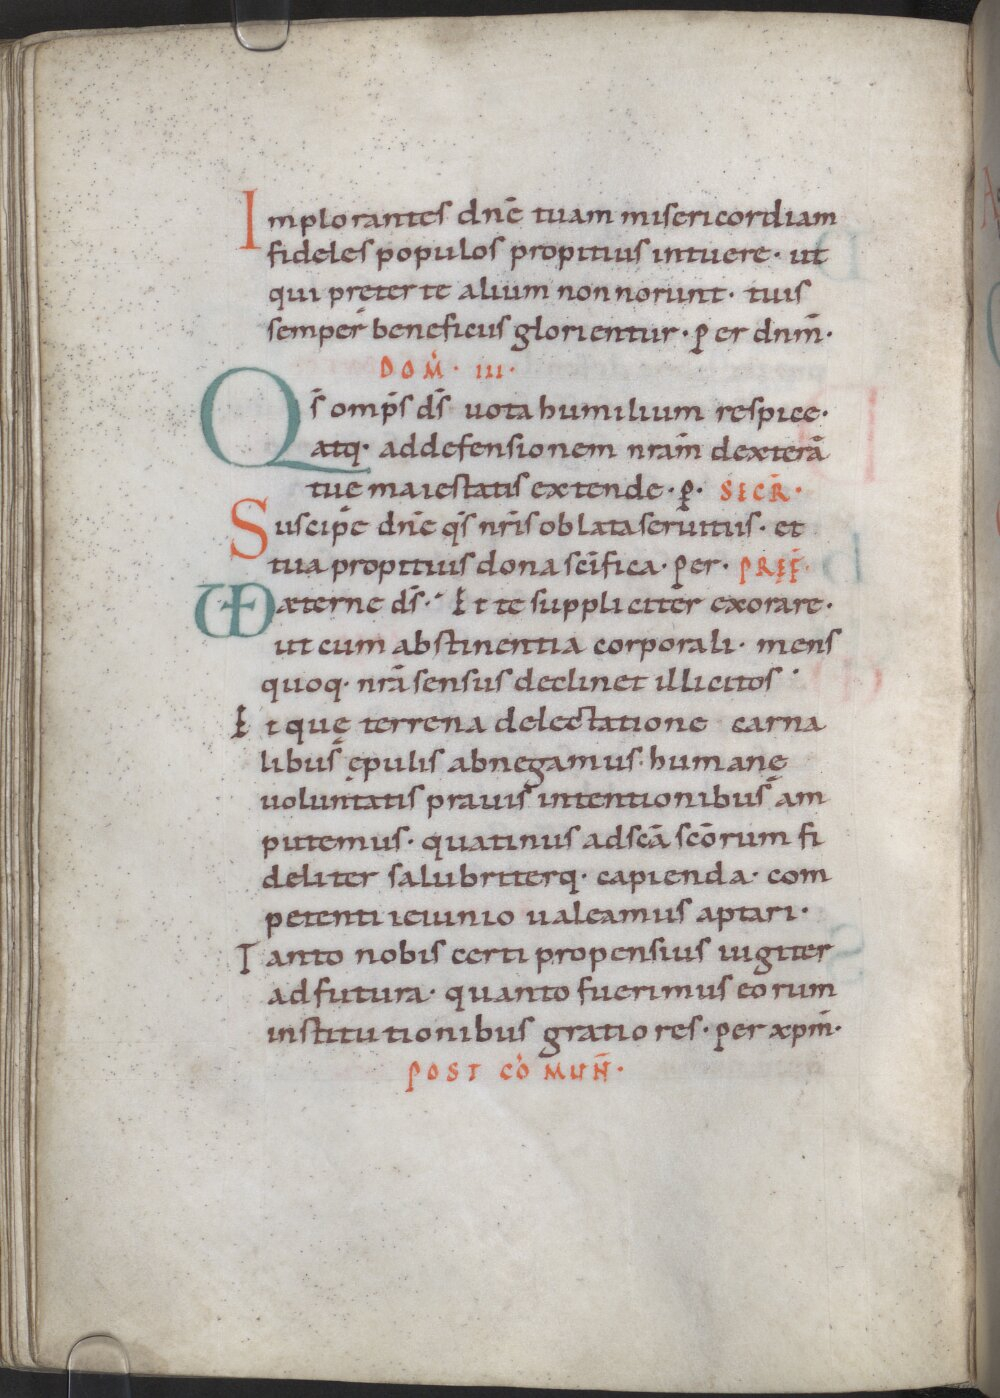 Implorantes dn̄e tuam misericordiam
fideles populos propitius intuere· ut
qui preter te alium non norunt· tuis
semper beneficiis glorientur· Per dnm̄·
DOM̄· III·
Qs̄ omp̄s ds̄ uota humilium respice·
atq· ad defensionem nram̄ dexterā
tue maiestatis extende· p̄· SECR̄·
Suscipe dn̄e qs̄ nr̄is oblata seruitiis· et
tua propitius dona sc̄ifica· Per· PREF̄·
VD æterne ds̄· Et te suppliciter exorare·
ut cum abstinentia corporali· mens
quoq· nrā sensus declinet illicitos·
Et quę terrena delectatione carna
libus epulis abnegamus· humanę
uoluntatis prauis intentionibus am
putemus· quatinus ad scā scōrum fi
deliter salubriterq· capienda· com
petenti ieiunio ualeamus aptari·
Tanto nobis certi propensius iugiter
adfutura· quanto fuerimus eorum
institutionibus gratiores· per xpm̄·
POST COMUN̄·